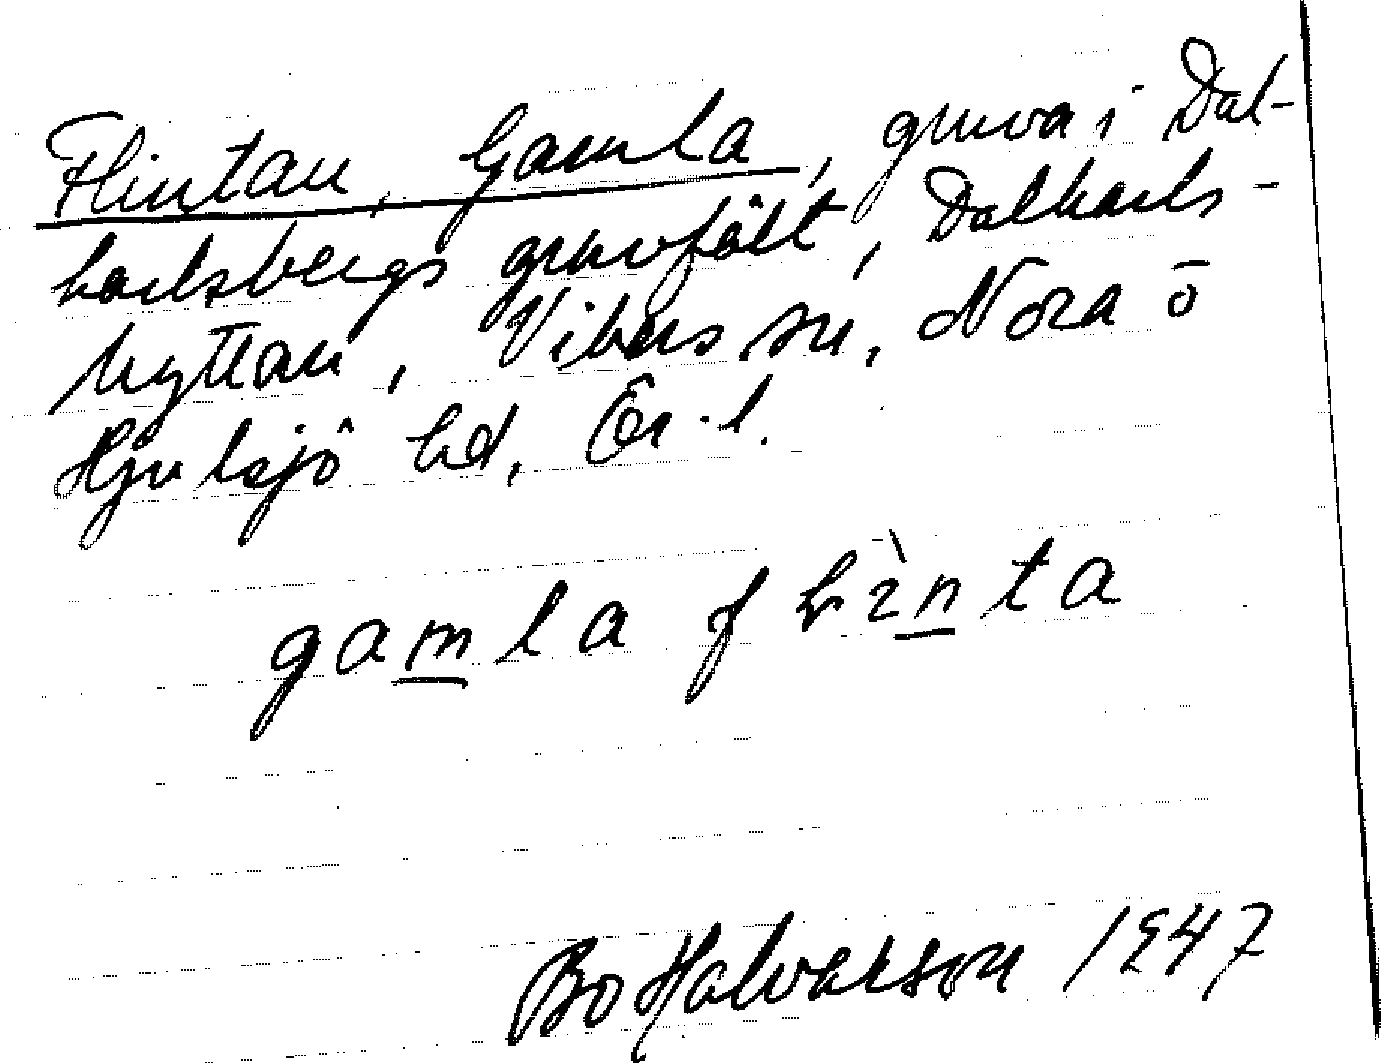 Flintan, Gamla, gruva i Dal-
karlsbergs gruvfält, Dalkarls-
hyttan, Vikers sn, Nora o
Hjulsjö hd, Ör. l.
gamla flìnta
Bo Halvarson 1947